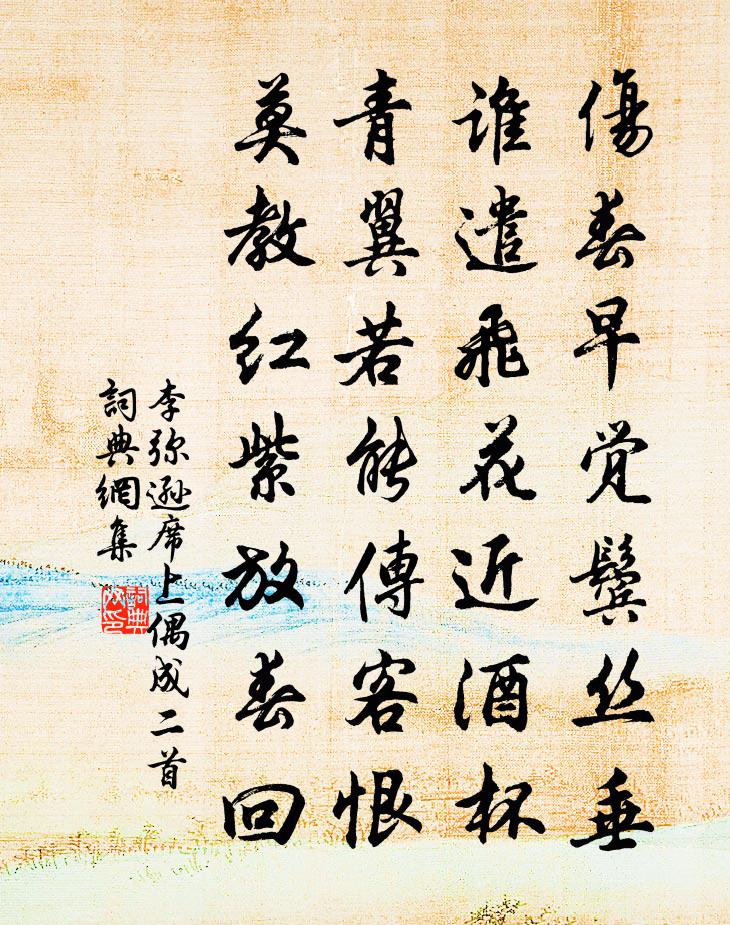 傷春早觉鬓丝垂
谁遣飛花近酒杯
青翼若能傳客恨
莫教红紫放春回
李弥遜席上偶成二首
詞典網集